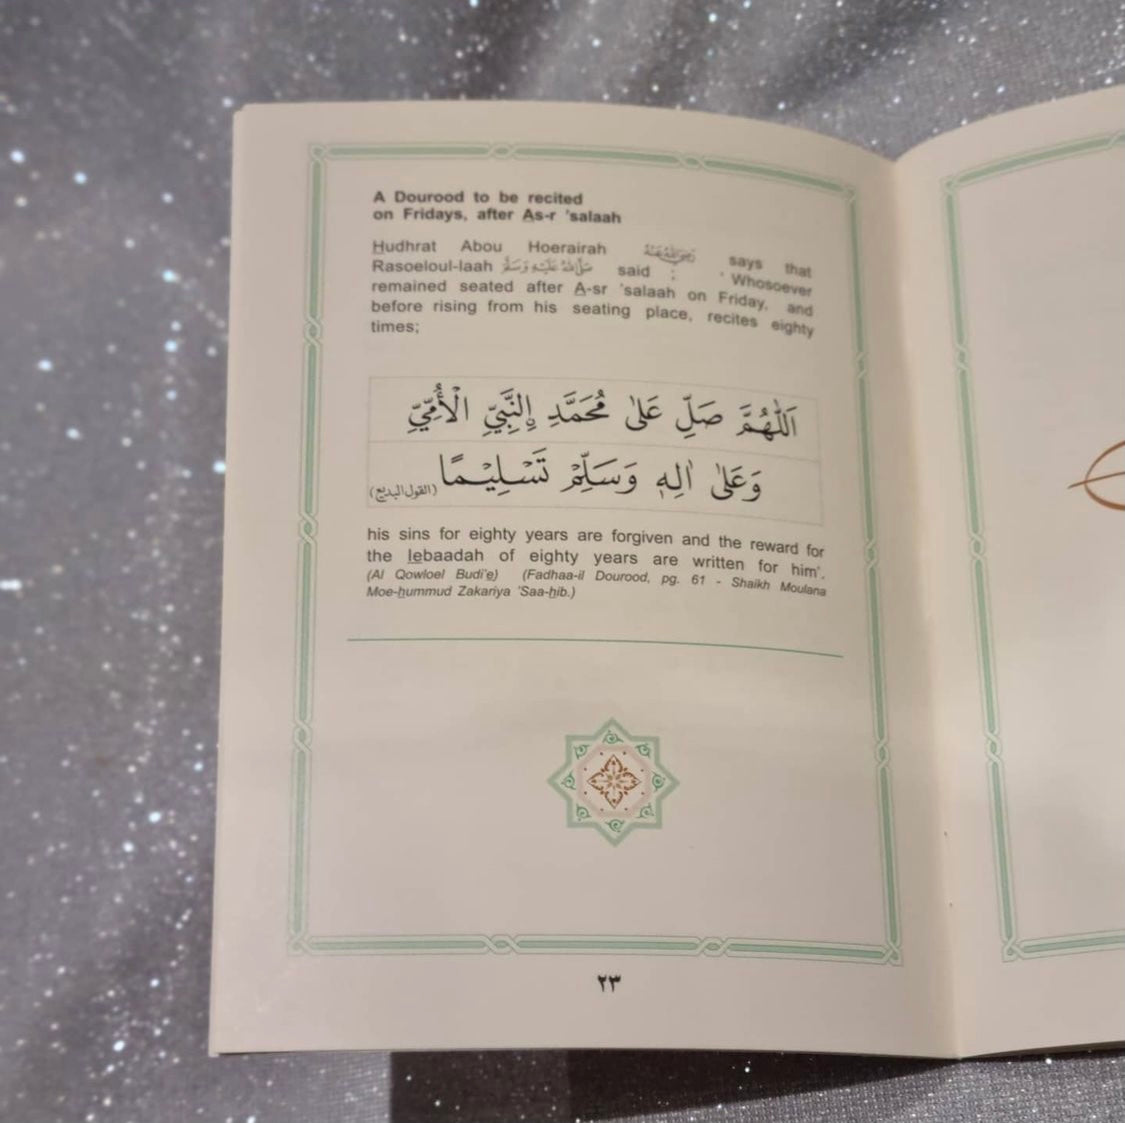 A Dourood to be recited
on Fridays, after As-r 'salaah
Hudhrat Abou Hoerairah رضي الله عنه says that
Rasoeloul-laah صلى الله عليه وسلم said : 'Whosoever
remained seated after A-sr 'salaah on Friday, and
before rising from his seating place, recites eighty
times;
اَللّٰهُمَّ صَلِّ عَلىٰ مُحَمَّدِ إِلنَّبِيِّ الْأُمِّيِّ
وَعَلىٰ اٰلِهٖ وَسَلِّمْ تَسْلِيْمًا (القول البديع)
his sins for eighty years are forgiven and the reward for
the Iebaadah of eighty years are written for him'.
(Al Qowloel Budi'e) (Fadhaa-il Dourood, pg. 61 - Shaikh Moulana
Moe-hummud Zakariya 'Saa-hib.)
٢٣